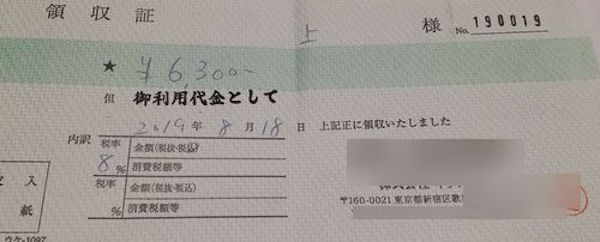 領収証
上 様 No. 190019
★ ¥6,300-
但 御利用代金として
2019年 8月 18日 上記正に領収いたしました
内訳
税率 8% 金額(税抜・税込)
消費税額等
税率 % 金額(税抜・税込)
消費税額等
入
紙
〒160-0021 東京都新宿区歌
ウケ-1097